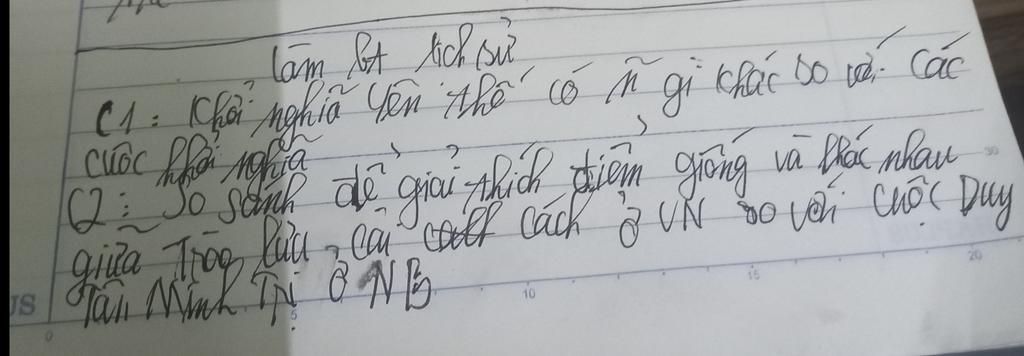 Làm BT lịch sử
C1: Khởi nghĩa Yên thế có ~ gì khác so với các
cuộc khởi nghĩa
C2: So sánh để giải thích điểm giống và khác nhau
giữa trào lưu cải cách ở VN so với cuộc Duy
Tân Minh Trị ở NB
5 10 15 20
30
0
US